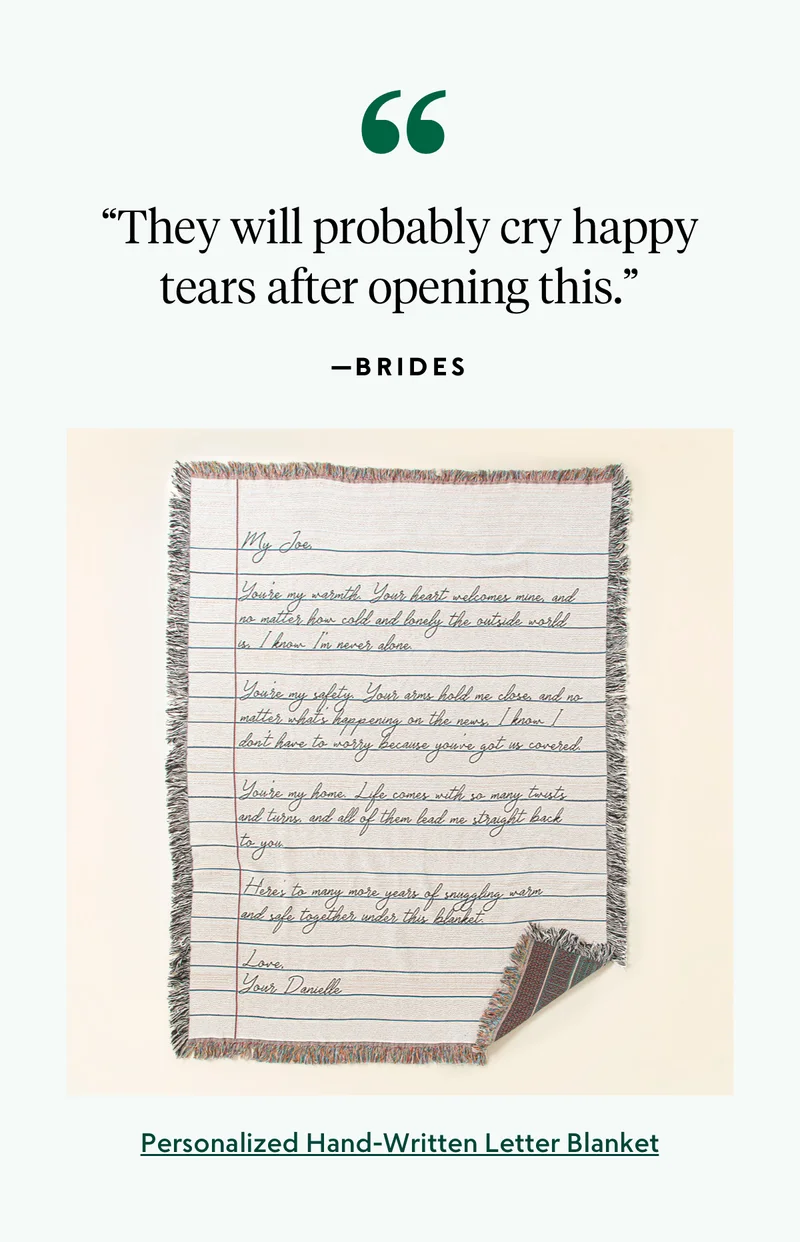 “They will probably cry happy
tears after opening this.”
—BRIDES
My Joe,
You're my warmth. Your heart welcomes mine, and
no matter how cold and lonely the outside world
is, I know I'm never alone.
You're my safety. Your arms hold me close, and no
matter what's happening on the news, I know I
don't have to worry because you've got us covered.
You're my home. Life comes with so many twists
and turns, and all of them lead me straight back
to you.
Here's to many more years of snuggling warm
and safe together under this blanket.
Love,
Your Danielle
Personalized Hand-Written Letter Blanket